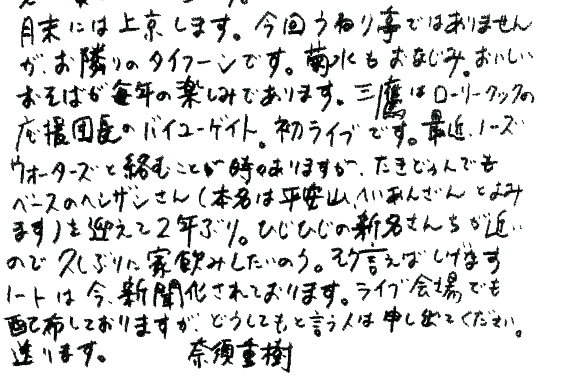 月末には上京します。今回うねり亭ではありません
が、お隣りのタイフーンです。菊水もおなじみ。おいしい
おそばが毎年の楽しみであります。三鷹はローリークックの
応援団長のバイユーゲイト。初ライブです。最近、ノーズ
ウォーターズと絡むことが時々ありますが、たきどうんでも
ベースのヘンザンさん(本名は平安山、へいあんざんとよみ
ます)を迎えて2年ぶり。ひじひじの新名さんちが近い
ので久しぶりに家飲みしたいのう。そう言えばしげます
ノートは今、新聞化されております。ライブ会場でも
配布しておりますが、どうしてもと言う人は申し出てください。
送ります。 奈須重樹